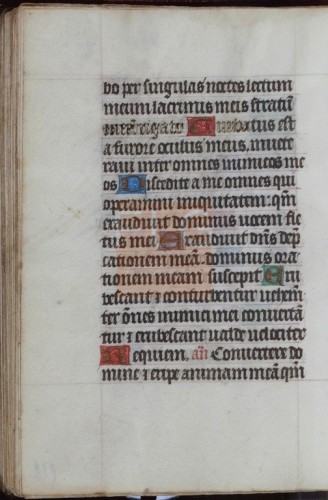 bo per singulas noctes lectum
meum lacrimis meis stratū
meū rigabo Turbatus est
a furore oculus meus, invete
ravi inter omnes inimicos me
os Discedite a me omnes qui
operamini iniquitatem: qm̄
exaudivit dominus vocem fle
tus mei Exaudivit dn̄s dep̄
cationem meā. dominus ora
tionem meam suscepit Eru
bescant ⁊ conturbentur vehem̄
ter ōnes inimici mei convertā
tur ⁊ erubescant valde velociter
Requiem. an̄ Convertere do
mine ⁊ eripe animam meā qm̄